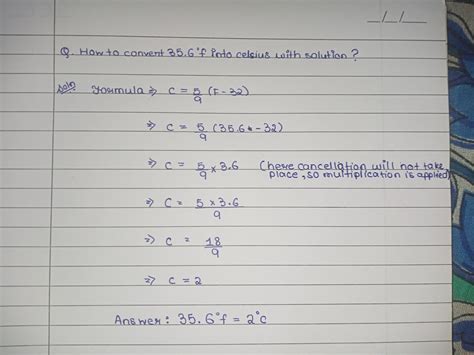 _/_/_
Q. How to convert 35.6°f into celsius with solution?
Soln Formula ⇒ C = 5/9 (F - 32)
⇒ C = 5/9 (35.6 - 32)
⇒ C = 5/9 × 3.6 (here cancellation will not take
place, so multiplication is applied)
⇒ C = 5 × 3.6 / 9
⇒ C = 18/9
⇒ C = 2
Answer: 35.6°f = 2°c